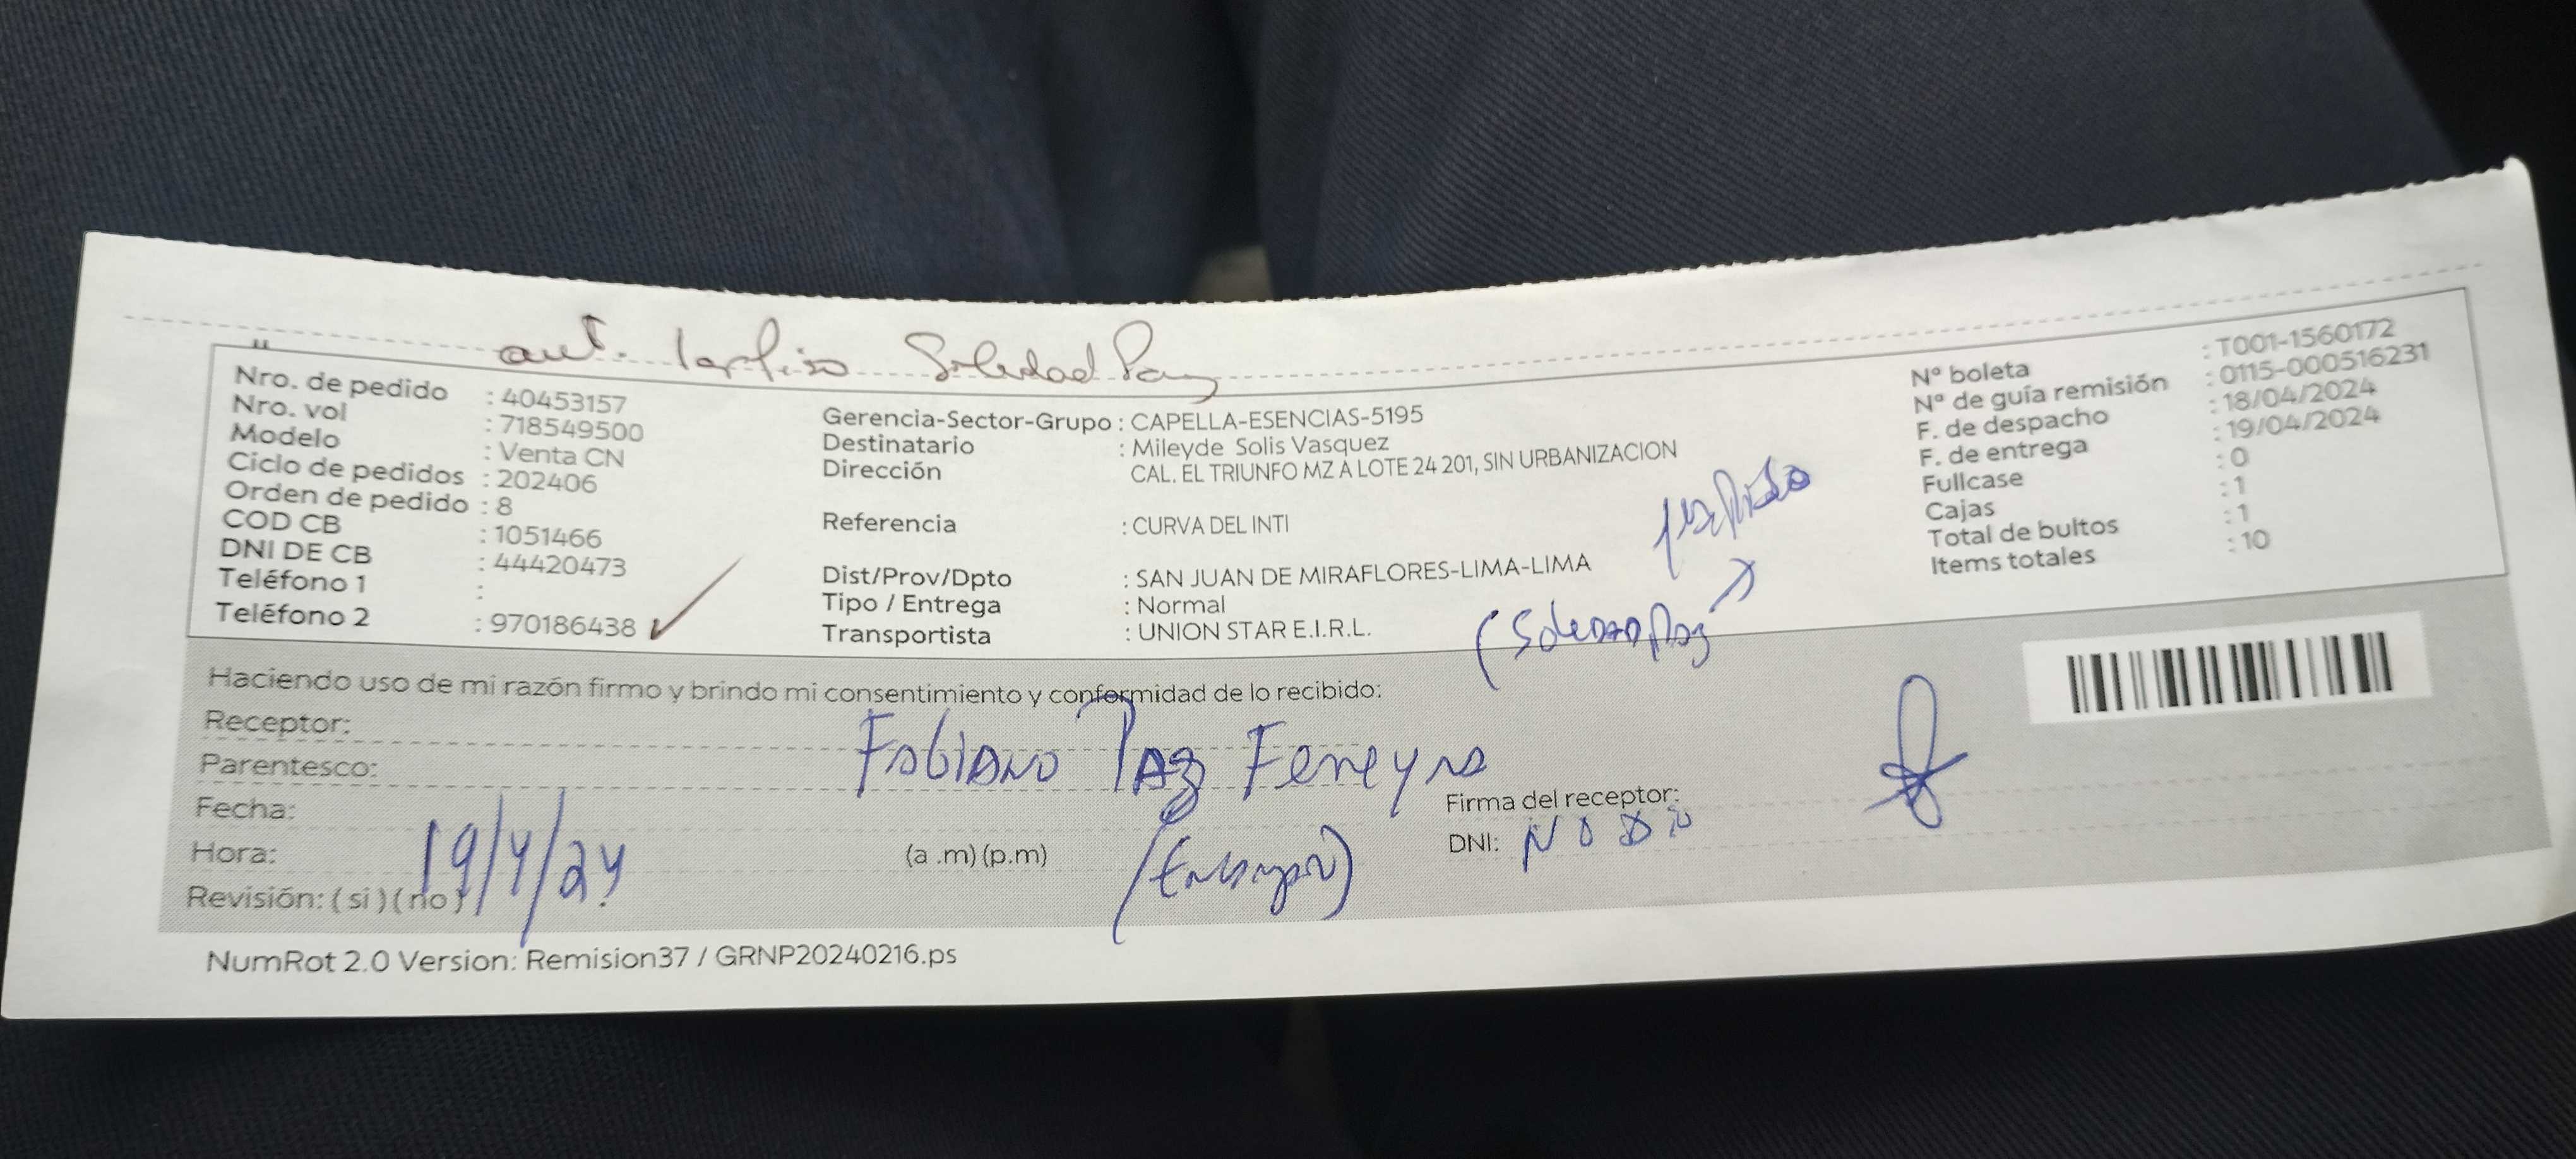 aut. 1er piso Soledad Paz
Nro. de pedido : 40453157
Nro. vol : 718549500
Modelo : Venta CN
Ciclo de pedidos : 202406
Orden de pedido : 8
COD CB : 1051466
DNI DE CB : 44420473
Teléfono 1 :
Teléfono 2 : 970186438
Gerencia-Sector-Grupo : CAPELLA-ESENCIAS-5195
Destinatario : Mileyde Solis Vasquez
Dirección CAL. EL TRIUNFO MZ A LOTE 24 201, SIN URBANIZACION
Referencia : CURVA DEL INTI
Dist/Prov/Dpto : SAN JUAN DE MIRAFLORES-LIMA-LIMA
Tipo / Entrega : Normal
Transportista : UNION STAR E.I.R.L.
1er piso
(Soledad Paz
Nº boleta : T001-1560172
Nº de guía remisión : 0115-000516231
F. de despacho : 18/04/2024
F. de entrega : 19/04/2024
Fullcase : 0
Cajas : 1
Total de bultos : 1
Items totales : 10
Haciendo uso de mi razón firmo y brindo mi consentimiento y conformidad de lo recibido:
Receptor: Fabiano Paz Ferreyra
Parentesco:
Fecha: 19/4/24
Hora: (a .m) (p.m)
Revisión: ( si ) ( no )
Firma del receptor:
DNI: NO DIO
NumRot 2.0 Version: Remision37 / GRNP20240216.ps